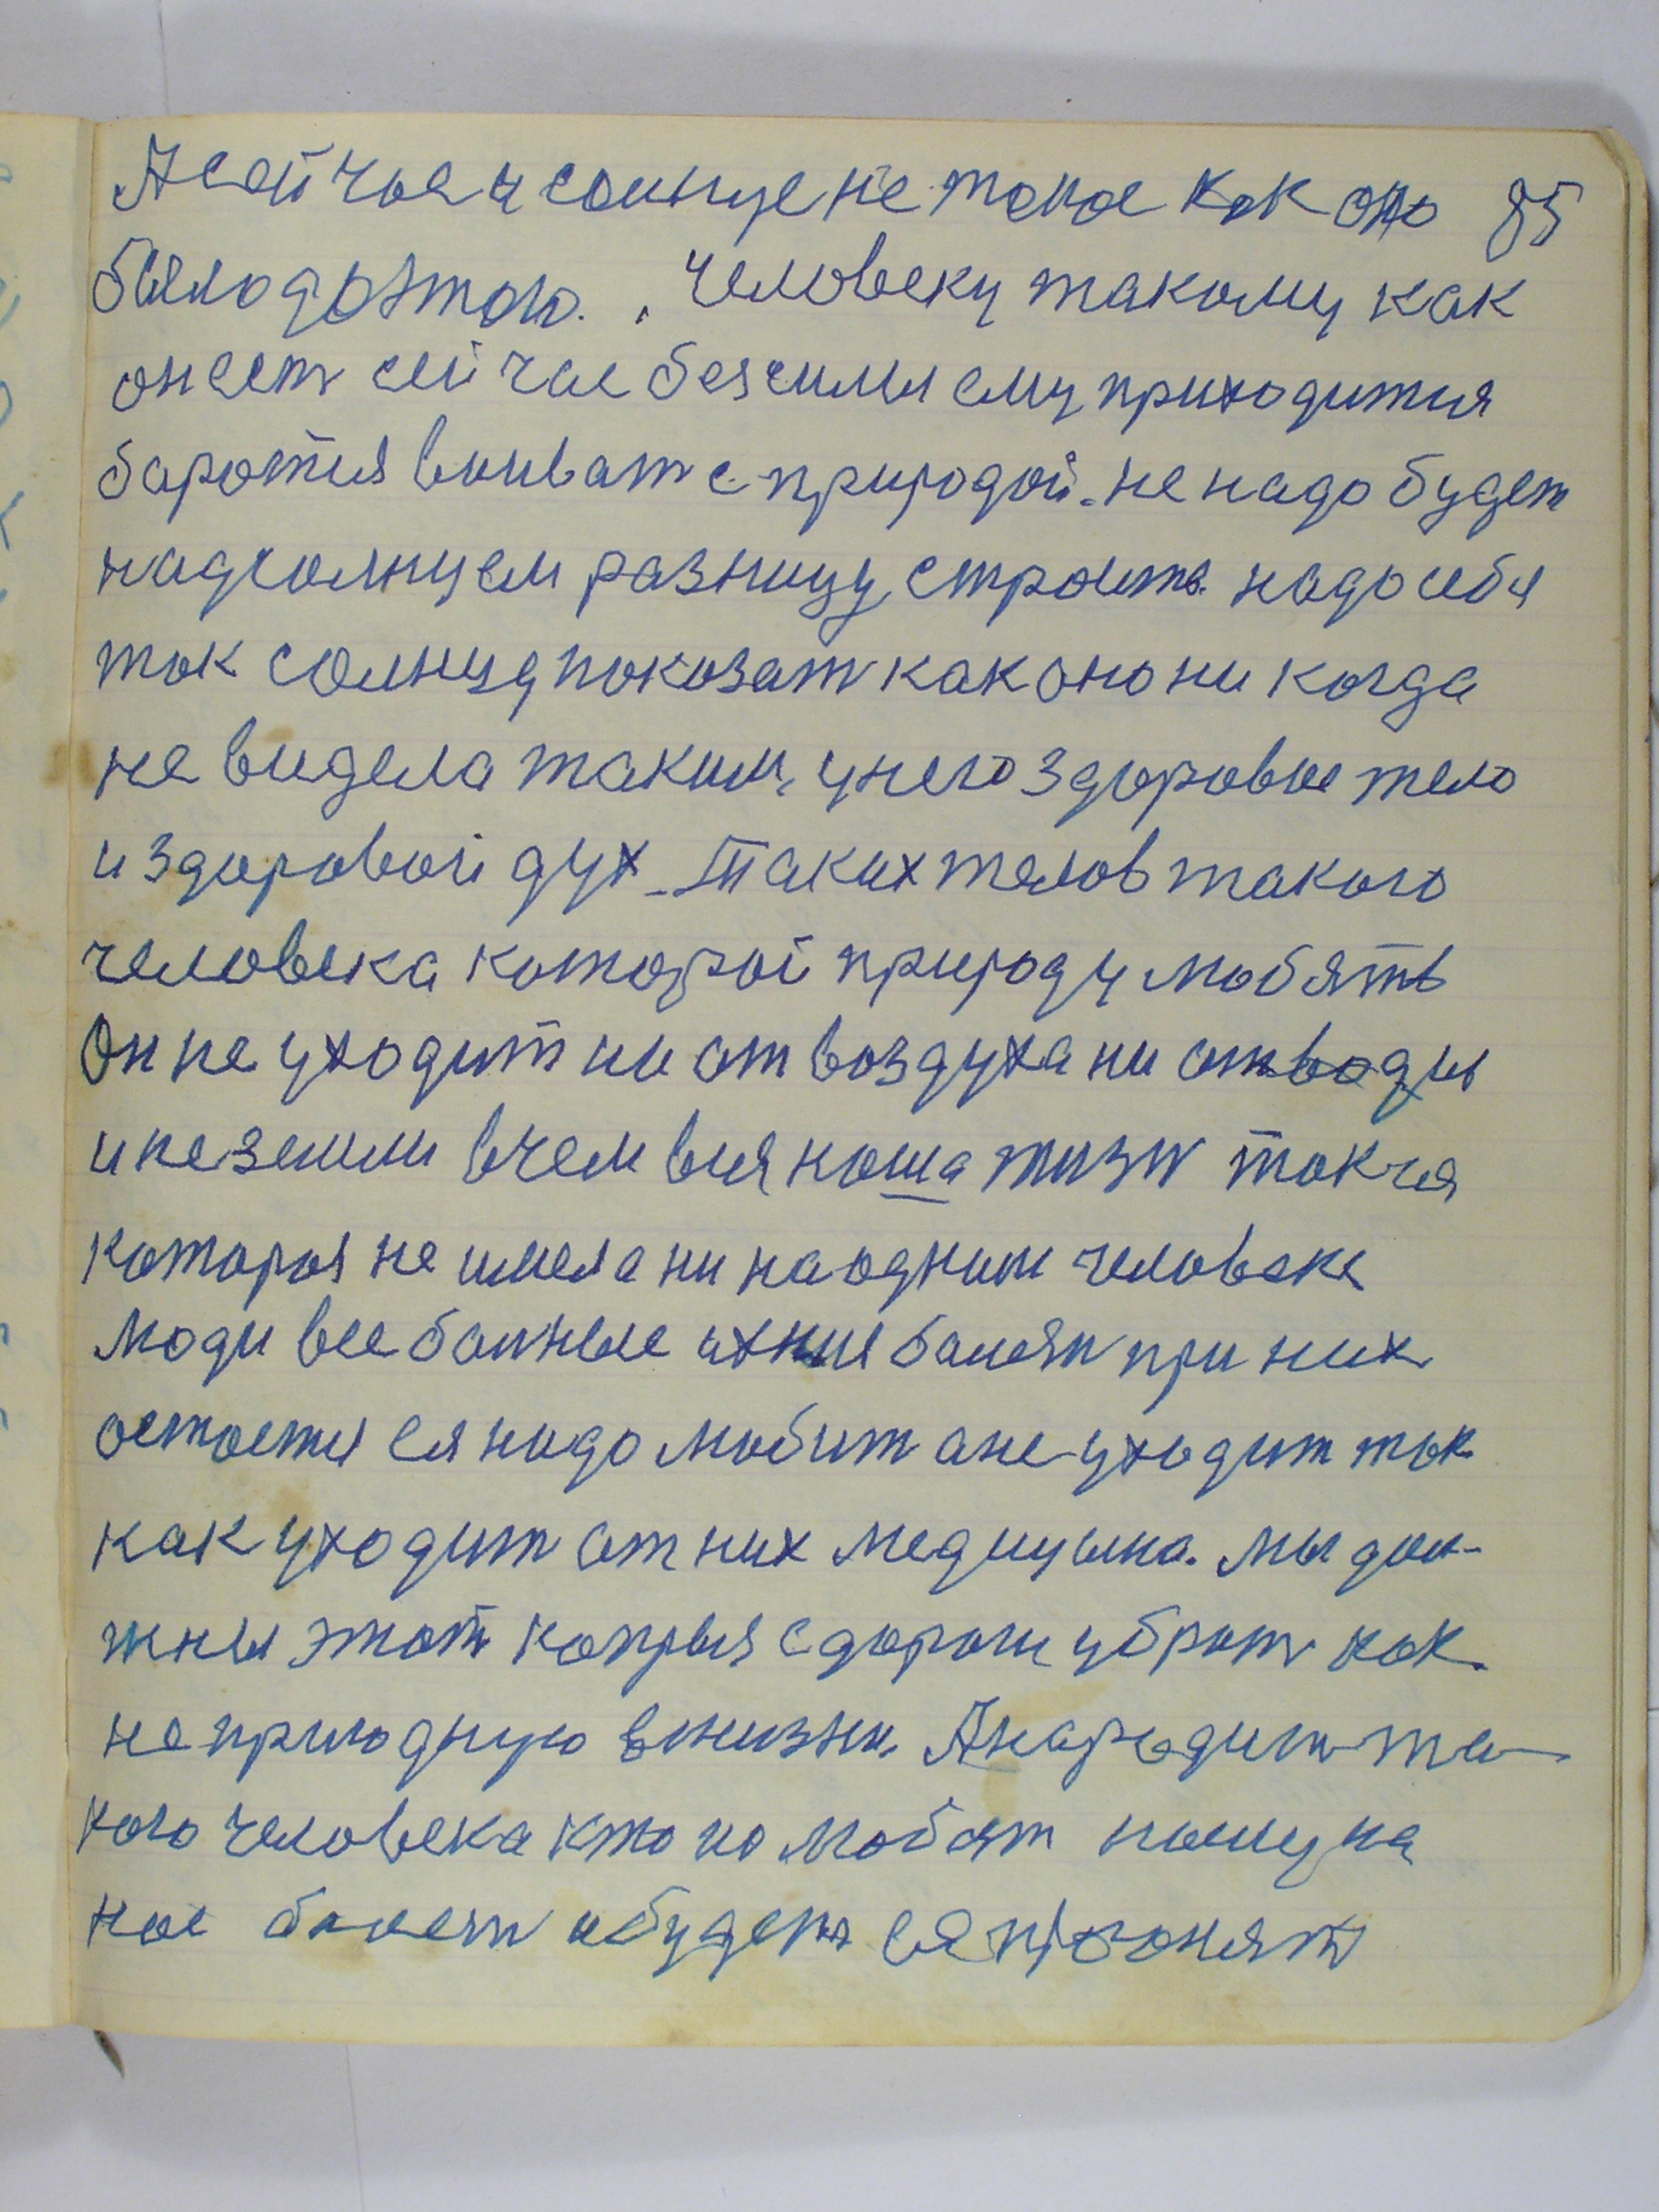 А сейчас и солнце не такое как оно 85
было до этого. Человеку такому как
он ест сейчас без силы ему приходится
баротся воиват с природой. не надо будет
над солнцем разницу строить. надо себя
так солнцу показат как оно ни когда
не видела таким, у него здоровое тело
и здоровой дух. Таких телов такого
человека которой природу любять
Он не уходит ни от воздуха ни от воды
и не земли в чем вся наша жизн такая
которая не имела ни на одним человеке
Люди все болные ихние болезн при них
остается ея надо любит а не уходит так
как уходит от них медицына. Мы дол-
жны этот с дороги убрат как
не природную в жизни. А народит та-
кого человека кто полюбят нашу на
нас болезн и будет ея прогонят